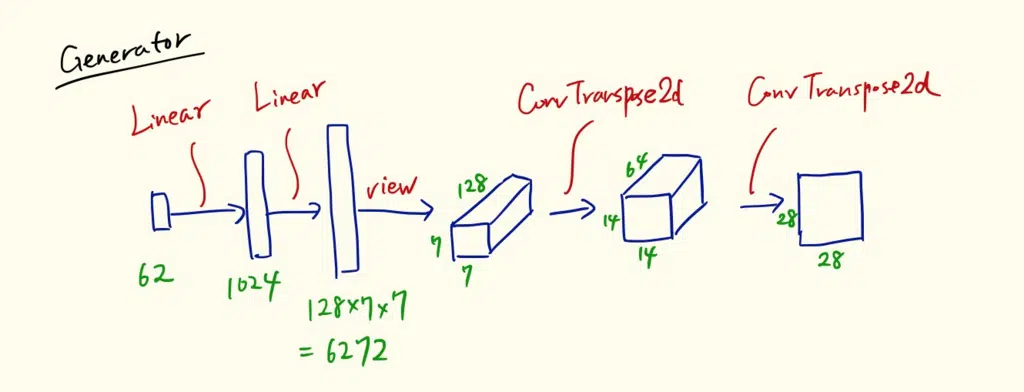 Generator
Linear
Linear
view
ConvTranspose2d
ConvTranspose2d
62
1024
128×7×7
= 6272
128
7
7
64
14
14
28
28